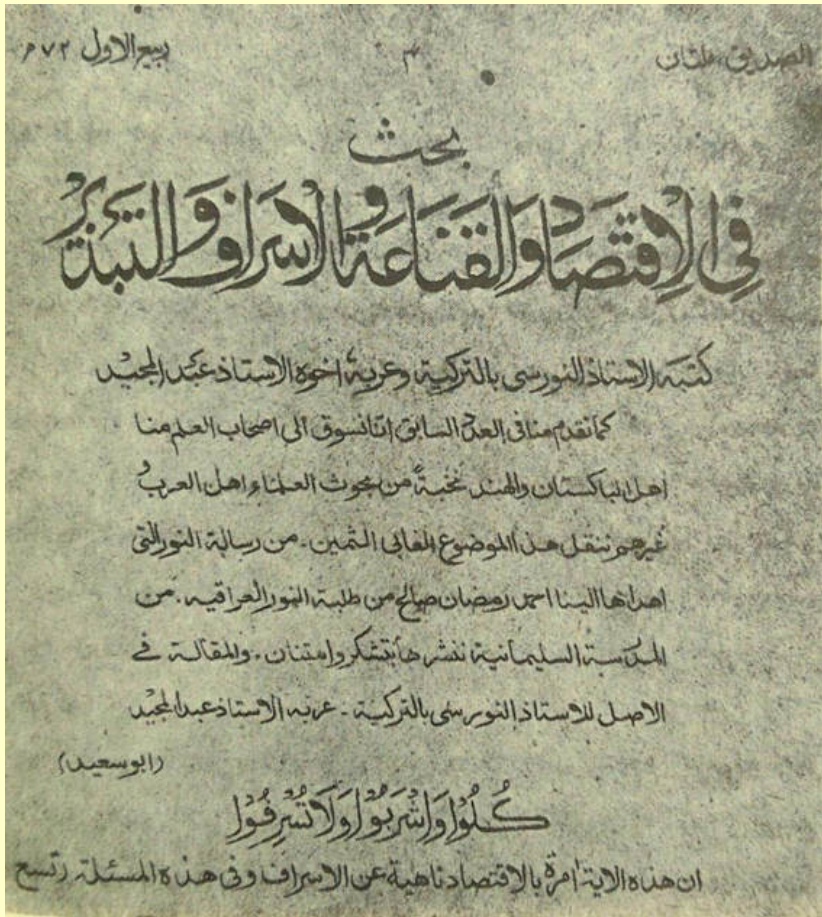 الصديق ملتان ٣ ربيع الاول ٧٢ ھ
بحث
في الاقتصاد والقناعة والاسراف والتبذير
كتبه الاستاذ النورسى بالتركية وعربه اخوه الاستاذ عبد المجيد
كما تقدم منا فى العدد السابق اننا نسوق الى اصحاب العلم منا
اهل الباكستان والهند نخبةً من بحوث العلماء اهل العرب و
غيرهم ننقل هذا الموضوع الغالى الثمين . من رسالة النور التى
اهداها الينا احمد رمضان صالح من طلبة النور العراقيه . من
المدرسة السليمانية ننشرها بتشكر وامتنان . والمقالة فے
الاصل للاستاذ النورسى بالتركية . عربه الاستاذ عبد المجيد
(ابو سعيد)
كُلُوْا وَاشْرَبُوْا وَلَا تُسْرِفُوْا
ان هذه الاية امرة بالاقتصاد ناهية عن الاسراف وفى هذه المسئلة (تسع